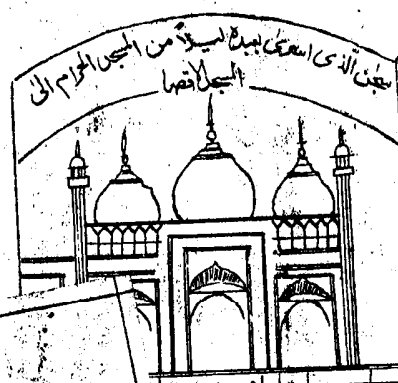 سبحٰن الّذی اسریٰ بعبدہ لیلاً من المسجد الحرام الی
المسجد لاقصا